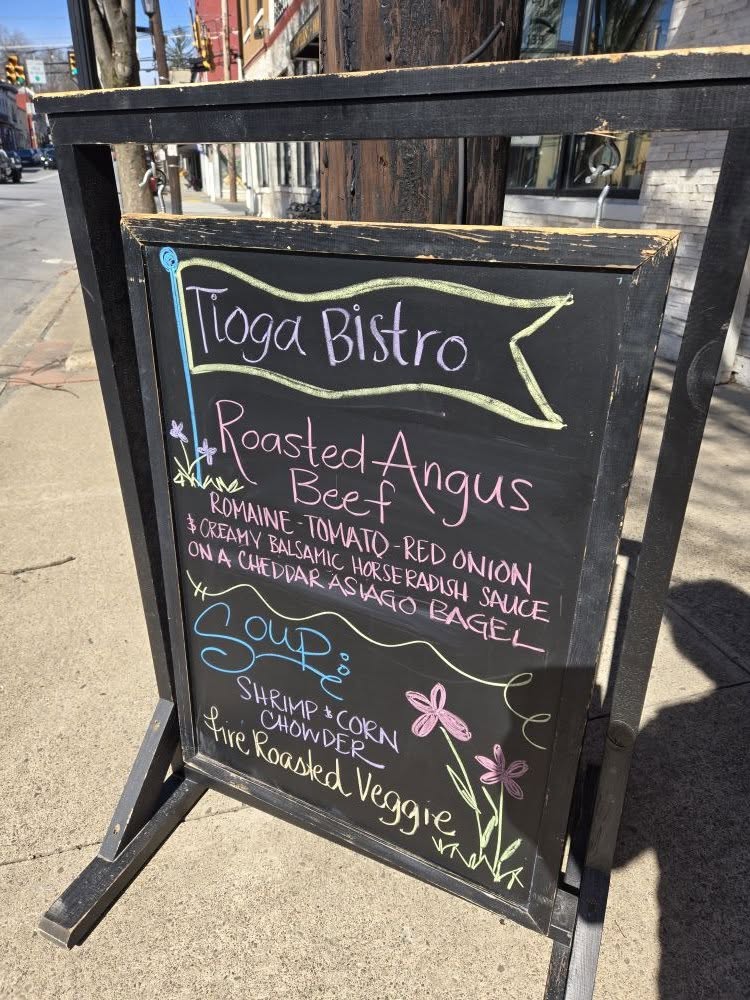 Tioga Bistro
Roasted Angus
Beef
ROMAINE - TOMATO - RED ONION
& CREAMY BALSAMIC HORSERADISH SAUCE
ON A CHEDDAR ASIAGO BAGEL
Soup:
SHRIMP & CORN
CHOWDER
Fire Roasted Veggie